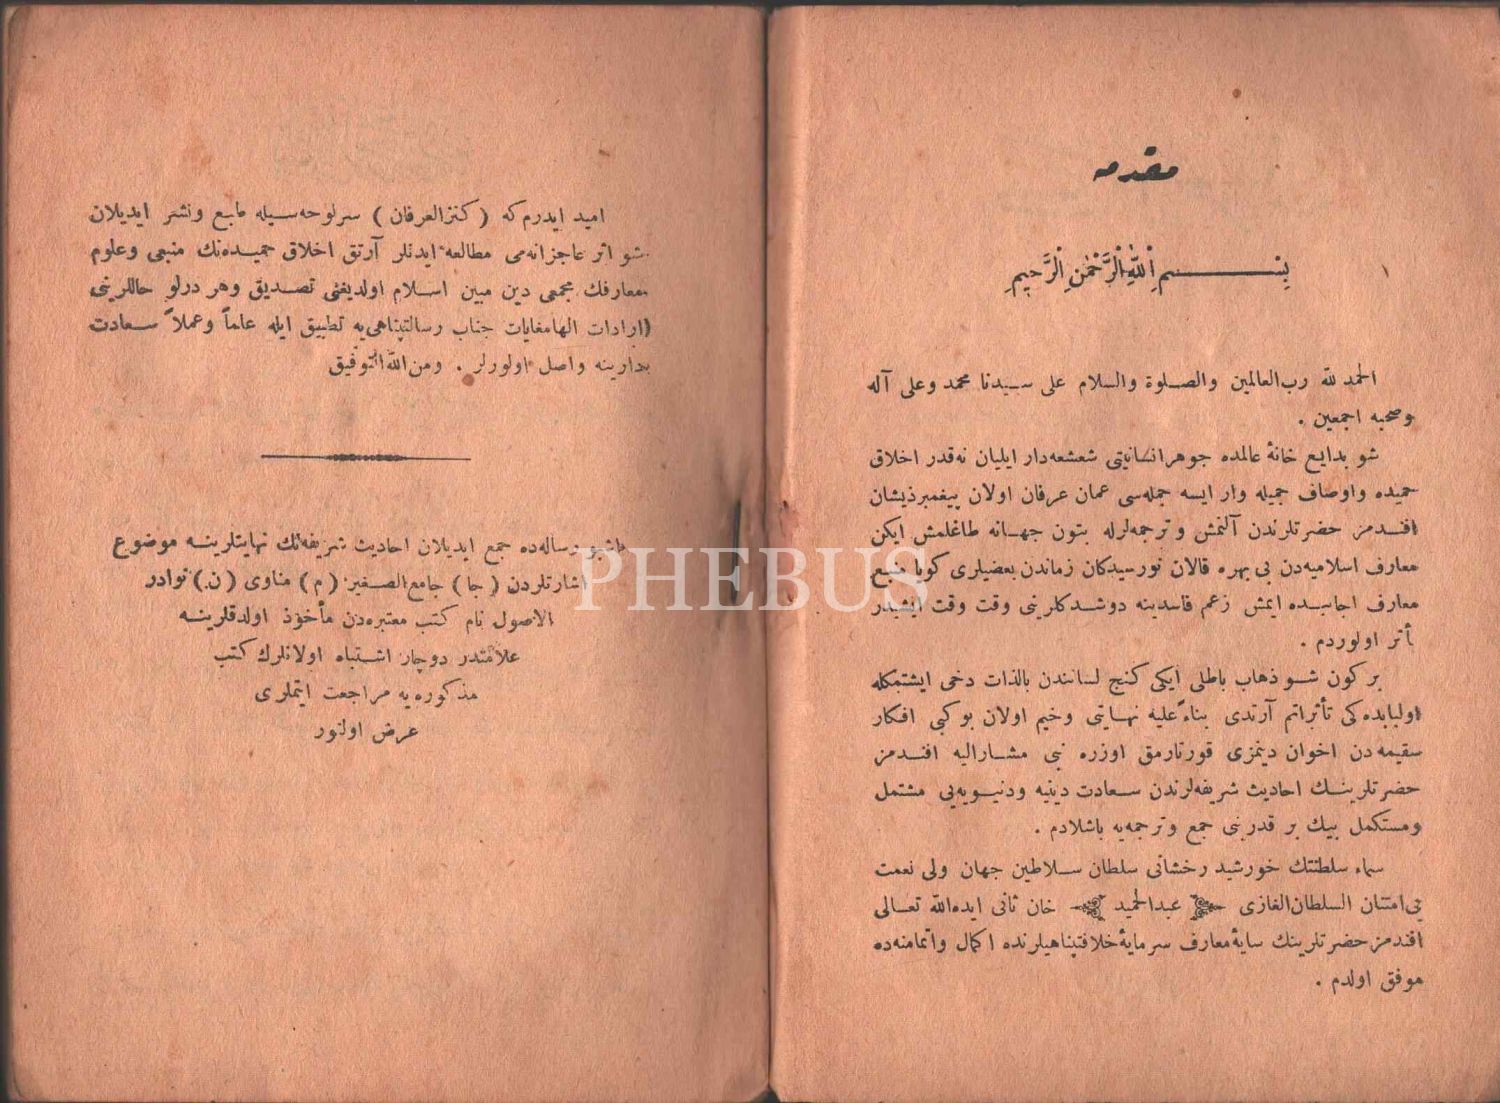 مقدمه
بِسْمِ اللهِ الرَّحْمٰنِ الرَّحِيمِ
الحمد لله رب‌العالمين والصلوة والسلام على سيدنا محمد وعلى آله
وصحبه اجمعين .
شو بدايع خانهٔ عالمده جوهر انسانيتى شعشعه‌دار ايليان نه‌قدر اخلاق
حميده واوصاف جميله وار ايسه جمله‌سى عمان عرفان اولان پيغمبرذيشان
افندمز حضرتلرندن آلنمش وترجمه‌لرله بتون جهانه طاغلمش ايكن
معارف اسلاميه‌دن بى بهره قالان نورسيدكان زماندن بعضيلرى كويا منبع
معارف اجانبده ايمش زعم فاسدينه دوشدكلرينى وقت وقت ايشيدر
متأثر اولوردم .
بر كون شو ذهاب باطلى ايكى كنج لسانندن بالذات دخى ايشتمكله
اولبابده‌كى تأثراتم آرتدى بناءً عليه نهايتى وخيم اولان بو كبى افكار
سقيمه‌دن اخوان دينمزى قورتارمق اوزره نبى مشاراليه افندمز
حضرتلرينك احاديث شريفه‌لرندن سعادت دينيه ودنيويه‌يى مشتمل
ومستكمل بيك بر قدرينى جمع وترجمه‌يه باشلادم .
سماء سلطنتك خورشيد رخشانى سلطان سلاطين جهان ولى نعمت
بى‌امتنان السلطان‌الغازى عبدالحميد خان ثانى ايده‌الله تعالى
افندمز حضرتلرينك سايهٔ معارف سرمايهٔ خلافتپناهيلرنده اكمال واتمامنه‌ده
موفق اولدم .
اميد ايدرم‌كه ( كنزالعرفان ) سرلوحه‌سيله طبع ونشر ايديلان
شو اثر عاجزانه‌مى مطالعه ايدنلر آرتق اخلاق حميده‌نك منبعى وعلوم
ومعارفك مجمعى دين مبين اسلام اولديغنى تصديق وهر درلو حاللرينى
ارادات الهامغايات جناب رسالتپناهى‌يه تطبيق ايله علماً وعملاً سعادت
دارينه واصل اولورلر . ومن‌الله‌التوفيق
اشبو رساله‌ده جمع ايديلان احاديث شريفه‌نك نهايتلرينه موضوع
اشارتلردن ( جا ) جامع‌الصغير ( م ) مناوى ( ن ) نوادر
الاصول نام كتب معتبره‌دن مأخوذ اولدقلرينه
علامتدر دوچار اشتباه اولانلرك كتب
مذكوره‌يه مراجعت ايتملرى
عرض اولنور
PHEBUS